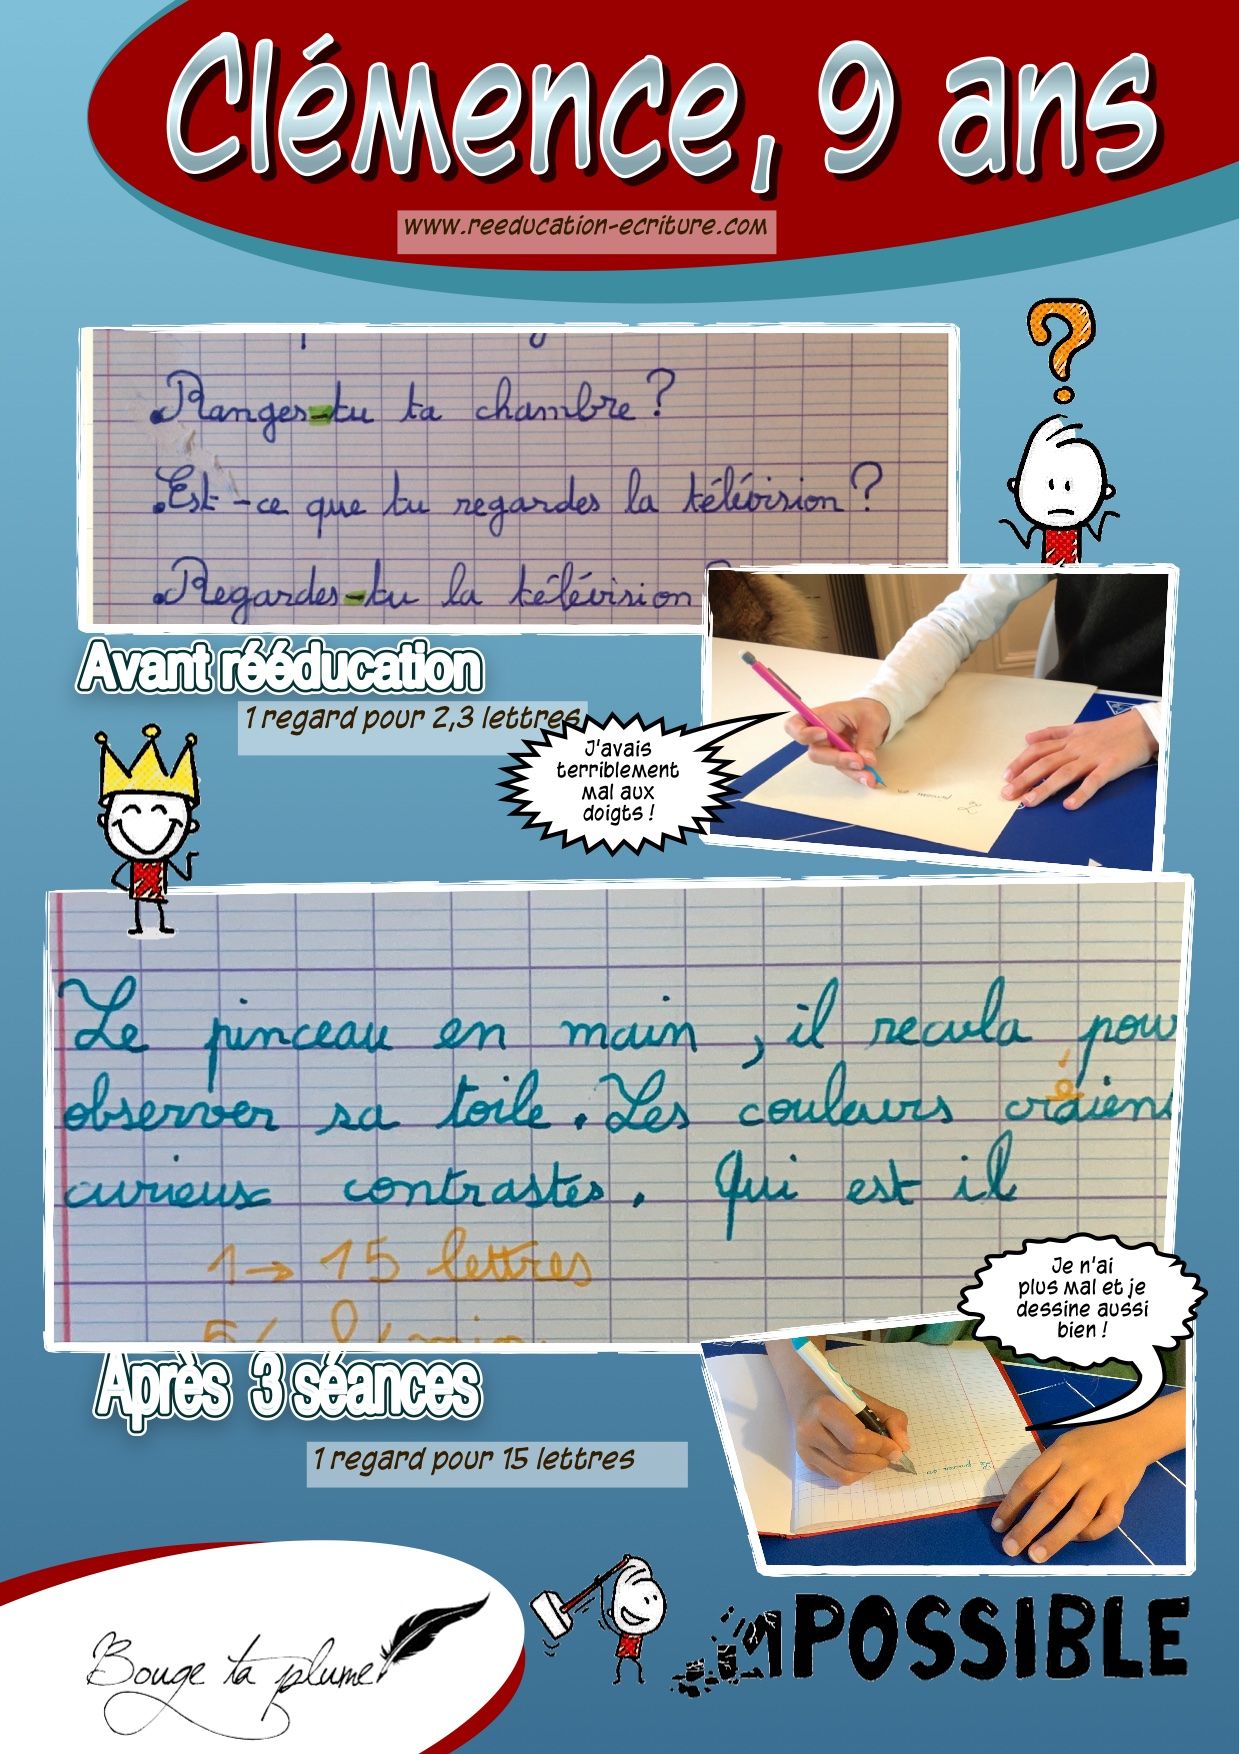 Clémence, 9 ans
www.reeducation-ecriture.com
?
Ranges-tu ta chambre ?
Est-ce que tu regardes la télévision ?
Regardes-tu la télévision
Avant rééducation
1 regard pour 2,3 lettres
J'avais
terriblement
mal aux
doigts !
Le pinceau en main, il recula pour
observer sa toile. Les couleurs créaient
curieux contrastes. Qui est il
1 → 15 lettres
Je n'ai
plus mal et je
dessine aussi
bien !
Après 3 séances
1 regard pour 15 lettres
Bouge ta plume
IMPOSSIBLE